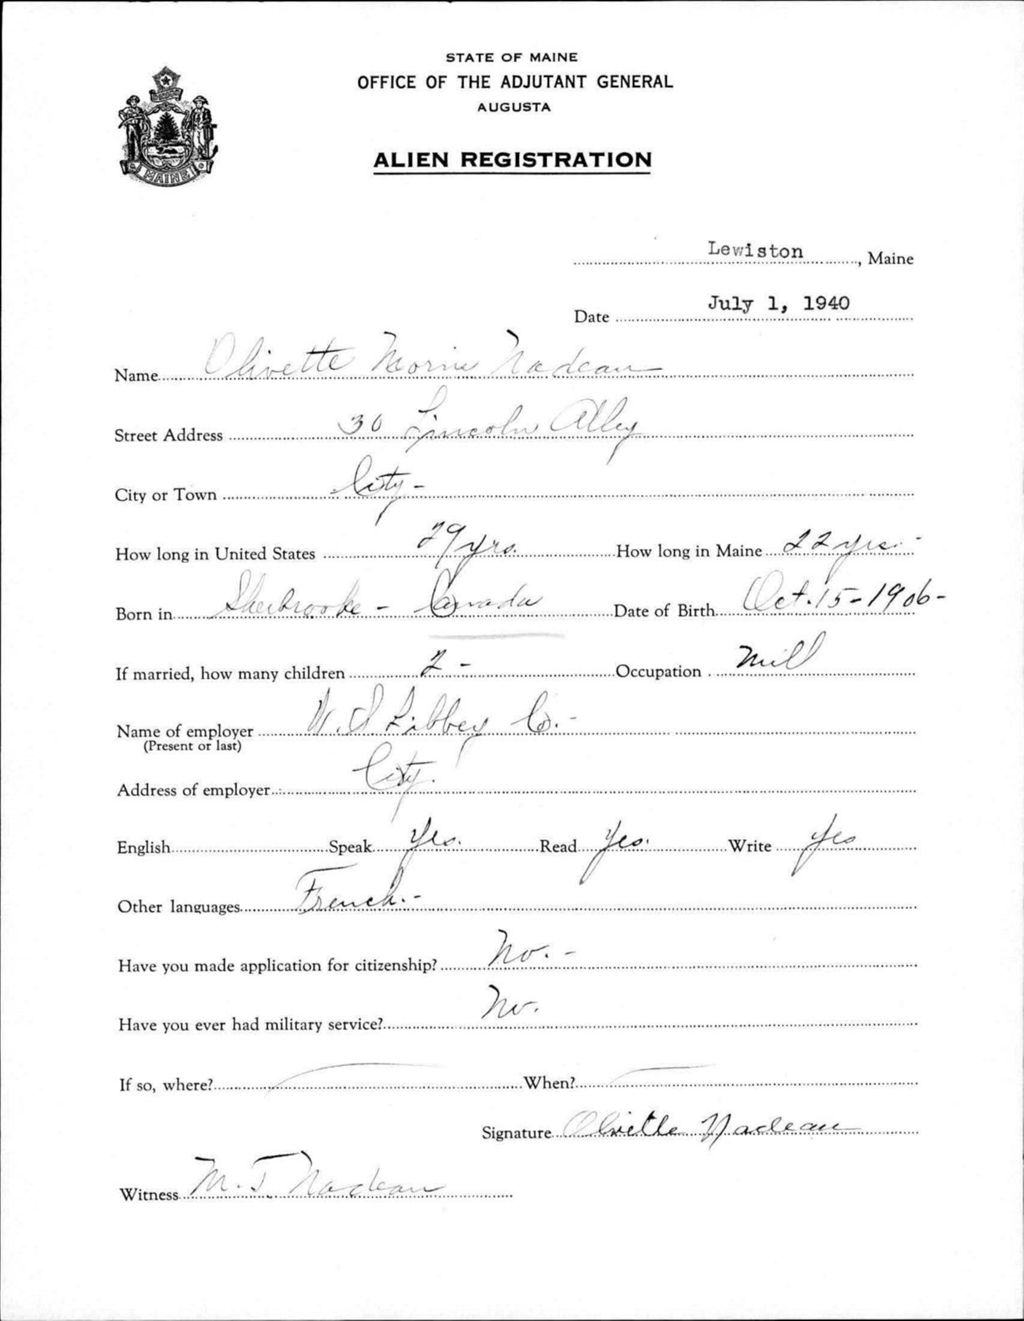 STATE OF MAINE
OFFICE OF THE ADJUTANT GENERAL
AUGUSTA
ALIEN REGISTRATION
MAINE
Lewiston, Maine
Date July 1, 1940
Name Olivette Morin Nadeau
Street Address 30 Lincoln Alley
City or Town City -
How long in United States 29 yrs. How long in Maine 22 yrs. -
Born in Sherbrooke - Canada Date of Birth Oct. 15 - 1906 -
If married, how many children 2 - Occupation Mill
Name of employer W. S. Libbey Co. -
(Present or last)
Address of employer City.
English Speak Yes. Read Yes. Write Yes
Other languages French. -
Have you made application for citizenship? No. -
Have you ever had military service? No.
If so, where? When?
Signature Olivette Nadeau
Witness M. T. Nadeau